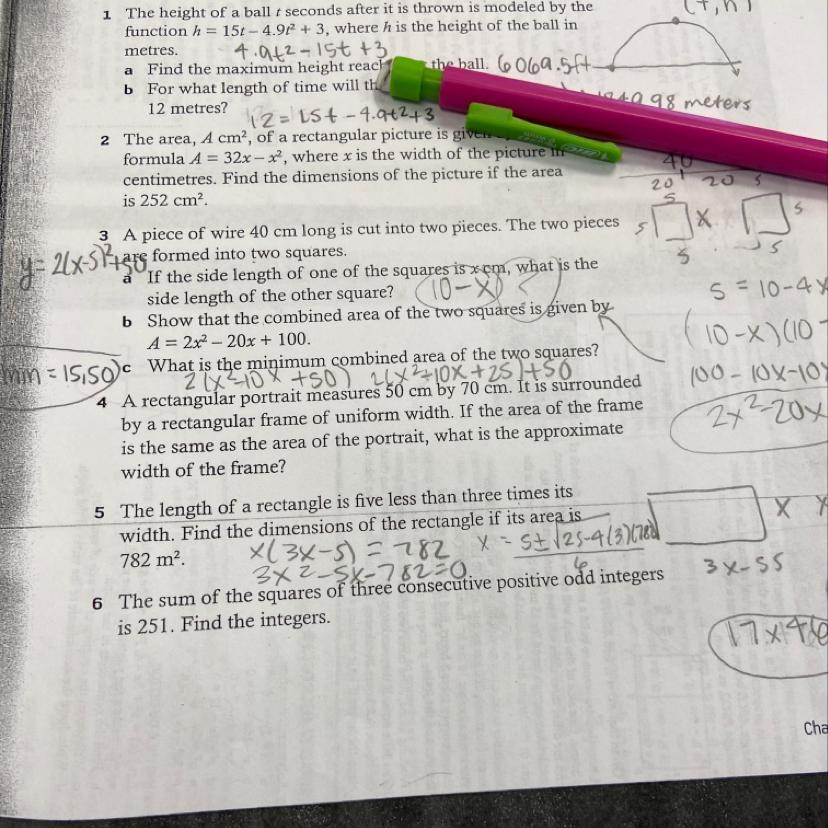 1 The height of a ball t seconds after it is thrown is modeled by the
function h = 15t – 4.9t² + 3, where h is the height of the ball in
metres. 4.9t2 – 15t + 3
a Find the maximum height the ball. 6069.5ft
b For what length of time will
12 metres? 12 = 15t – 4.9t2+3
meters
2 The area, A cm², of a rectangular picture is
formula A = 32x – x², where x is the width of the picture in
centimetres. Find the dimensions of the picture if the area
is 252 cm².
40
20 20
3 A piece of wire 40 cm long is cut into two pieces. The two pieces
are formed into two squares.
s s X s s
s s
y = 2(x-5)²+50
a If the side length of one of the squares is x cm, what is the
side length of the other square? (10-x)
s = 10-4x
b Show that the combined area of the two squares is given by
A = 2x² – 20x + 100.
(10-x)(10-
c What is the minimum combined area of the two squares?
= 15,50)
2(x²-10x +50) 2(x²+10x+25)+50
100 - 10x-10x
2x²-20x
4 A rectangular portrait measures 50 cm by 70 cm. It is surrounded
by a rectangular frame of uniform width. If the area of the frame
is the same as the area of the portrait, what is the approximate
width of the frame?
5 The length of a rectangle is five less than three times its
width. Find the dimensions of the rectangle if its area is
782 m². x(3x-5) = 782 x = 5±√25-4(3)(782
6
3x2-5x-782=0
x
3x-5
6 The sum of the squares of three consecutive positive odd integers
is 251. Find the integers.
17 x 46
Cha